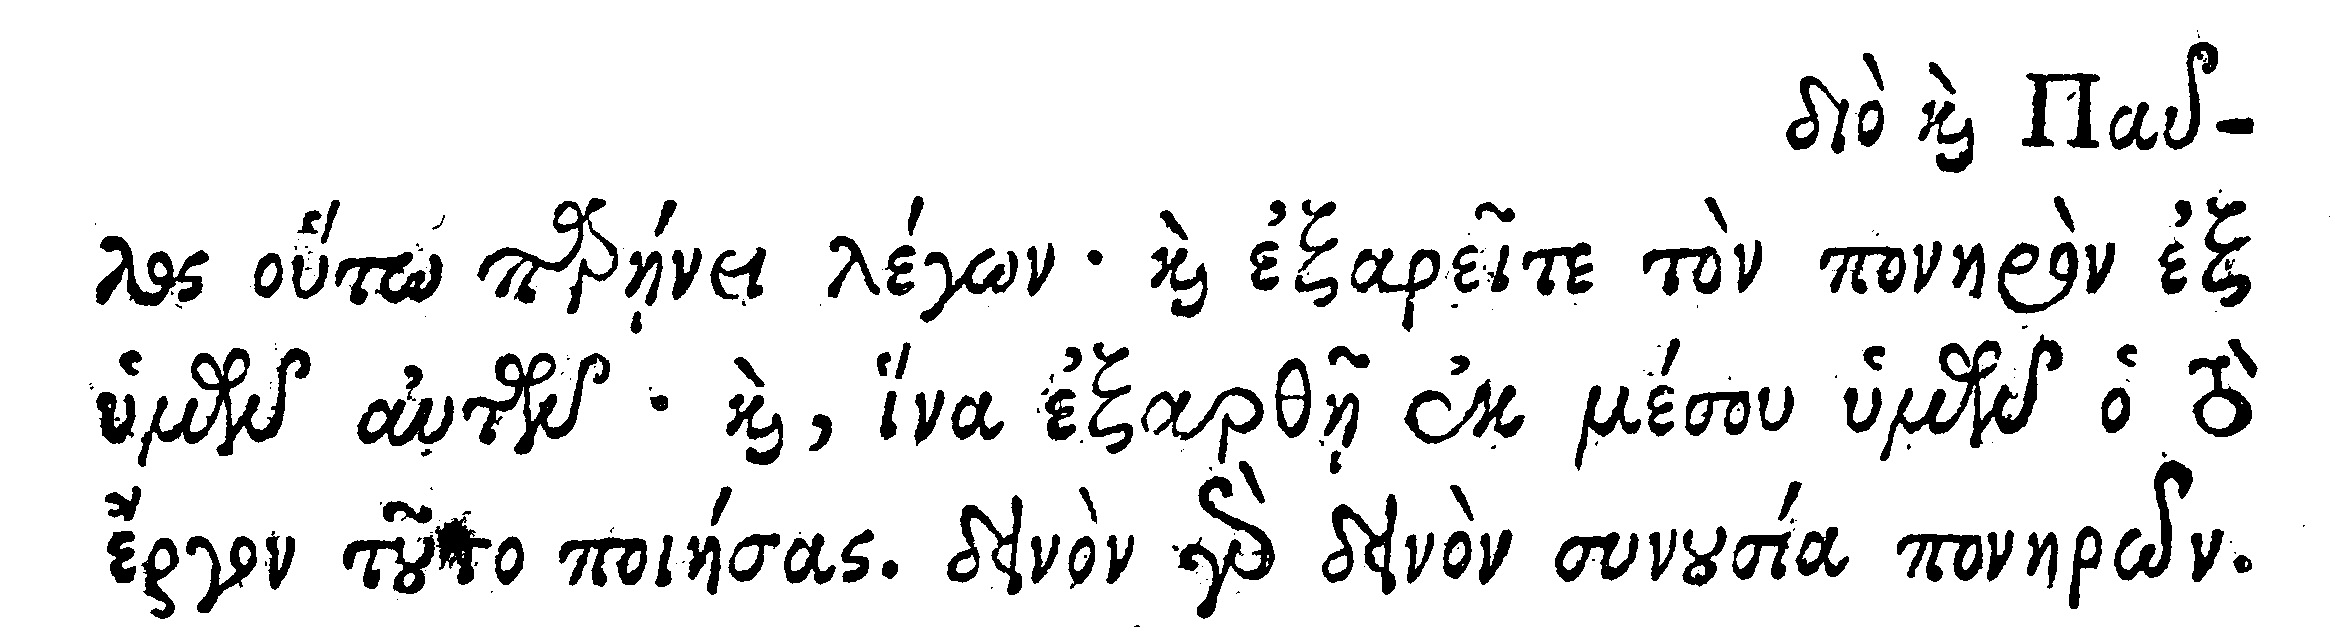 διὸ καὶ Παῦ-
λος οὕτω παρῄνει λέγων · καὶ ἐξαρεῖτε τὸν πονηρὸν ἐξ
ὑμῶν αὐτῶν · καὶ, ἵνα ἐξαρθῇ ἐκ μέσου ὑμῶν ὁ τὸ
ἔργον τοῦτο ποιήσας. δεινὸν γὰρ δεινὸν συνουσία πονηρῶν.